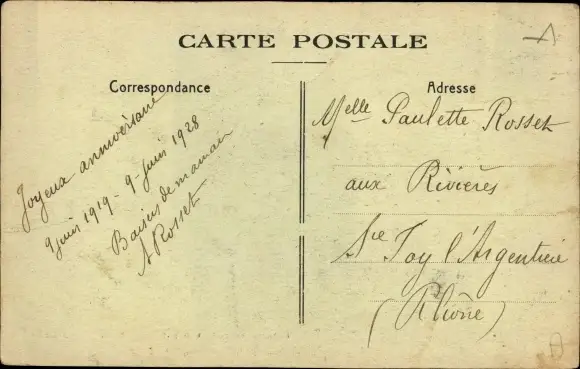 CARTE POSTALE
Correspondance
Joyeux anniversaire
9 juin 1919 - 9 - juin 1928
Baisers de maman
A Rosset
Adresse
Melle Paulette Rosset
aux Rivières
Ste Foy l'Argentière
(Rhône)